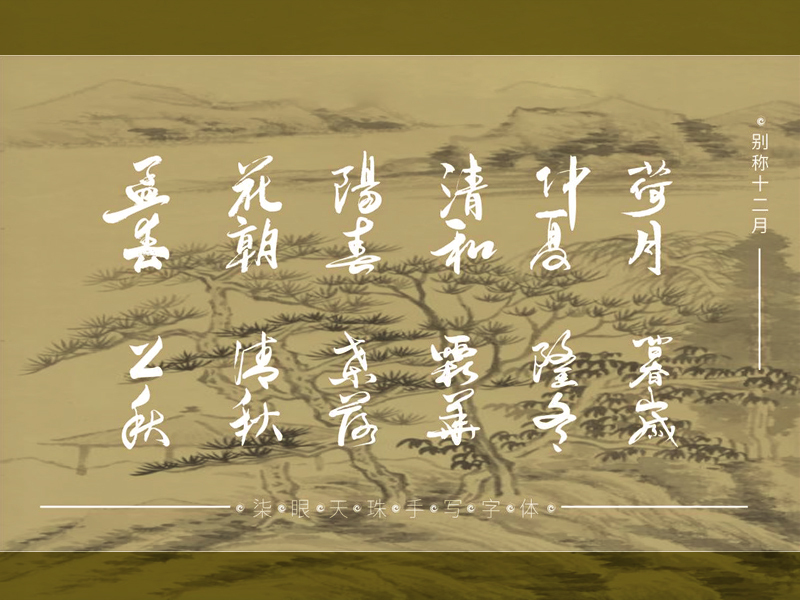 别称十二月
孟春
花朝
陽春
清和
仲夏
荷月
公秋
清秋
葉落
霜華
隆冬
暮歲
柒眼天珠手写字体